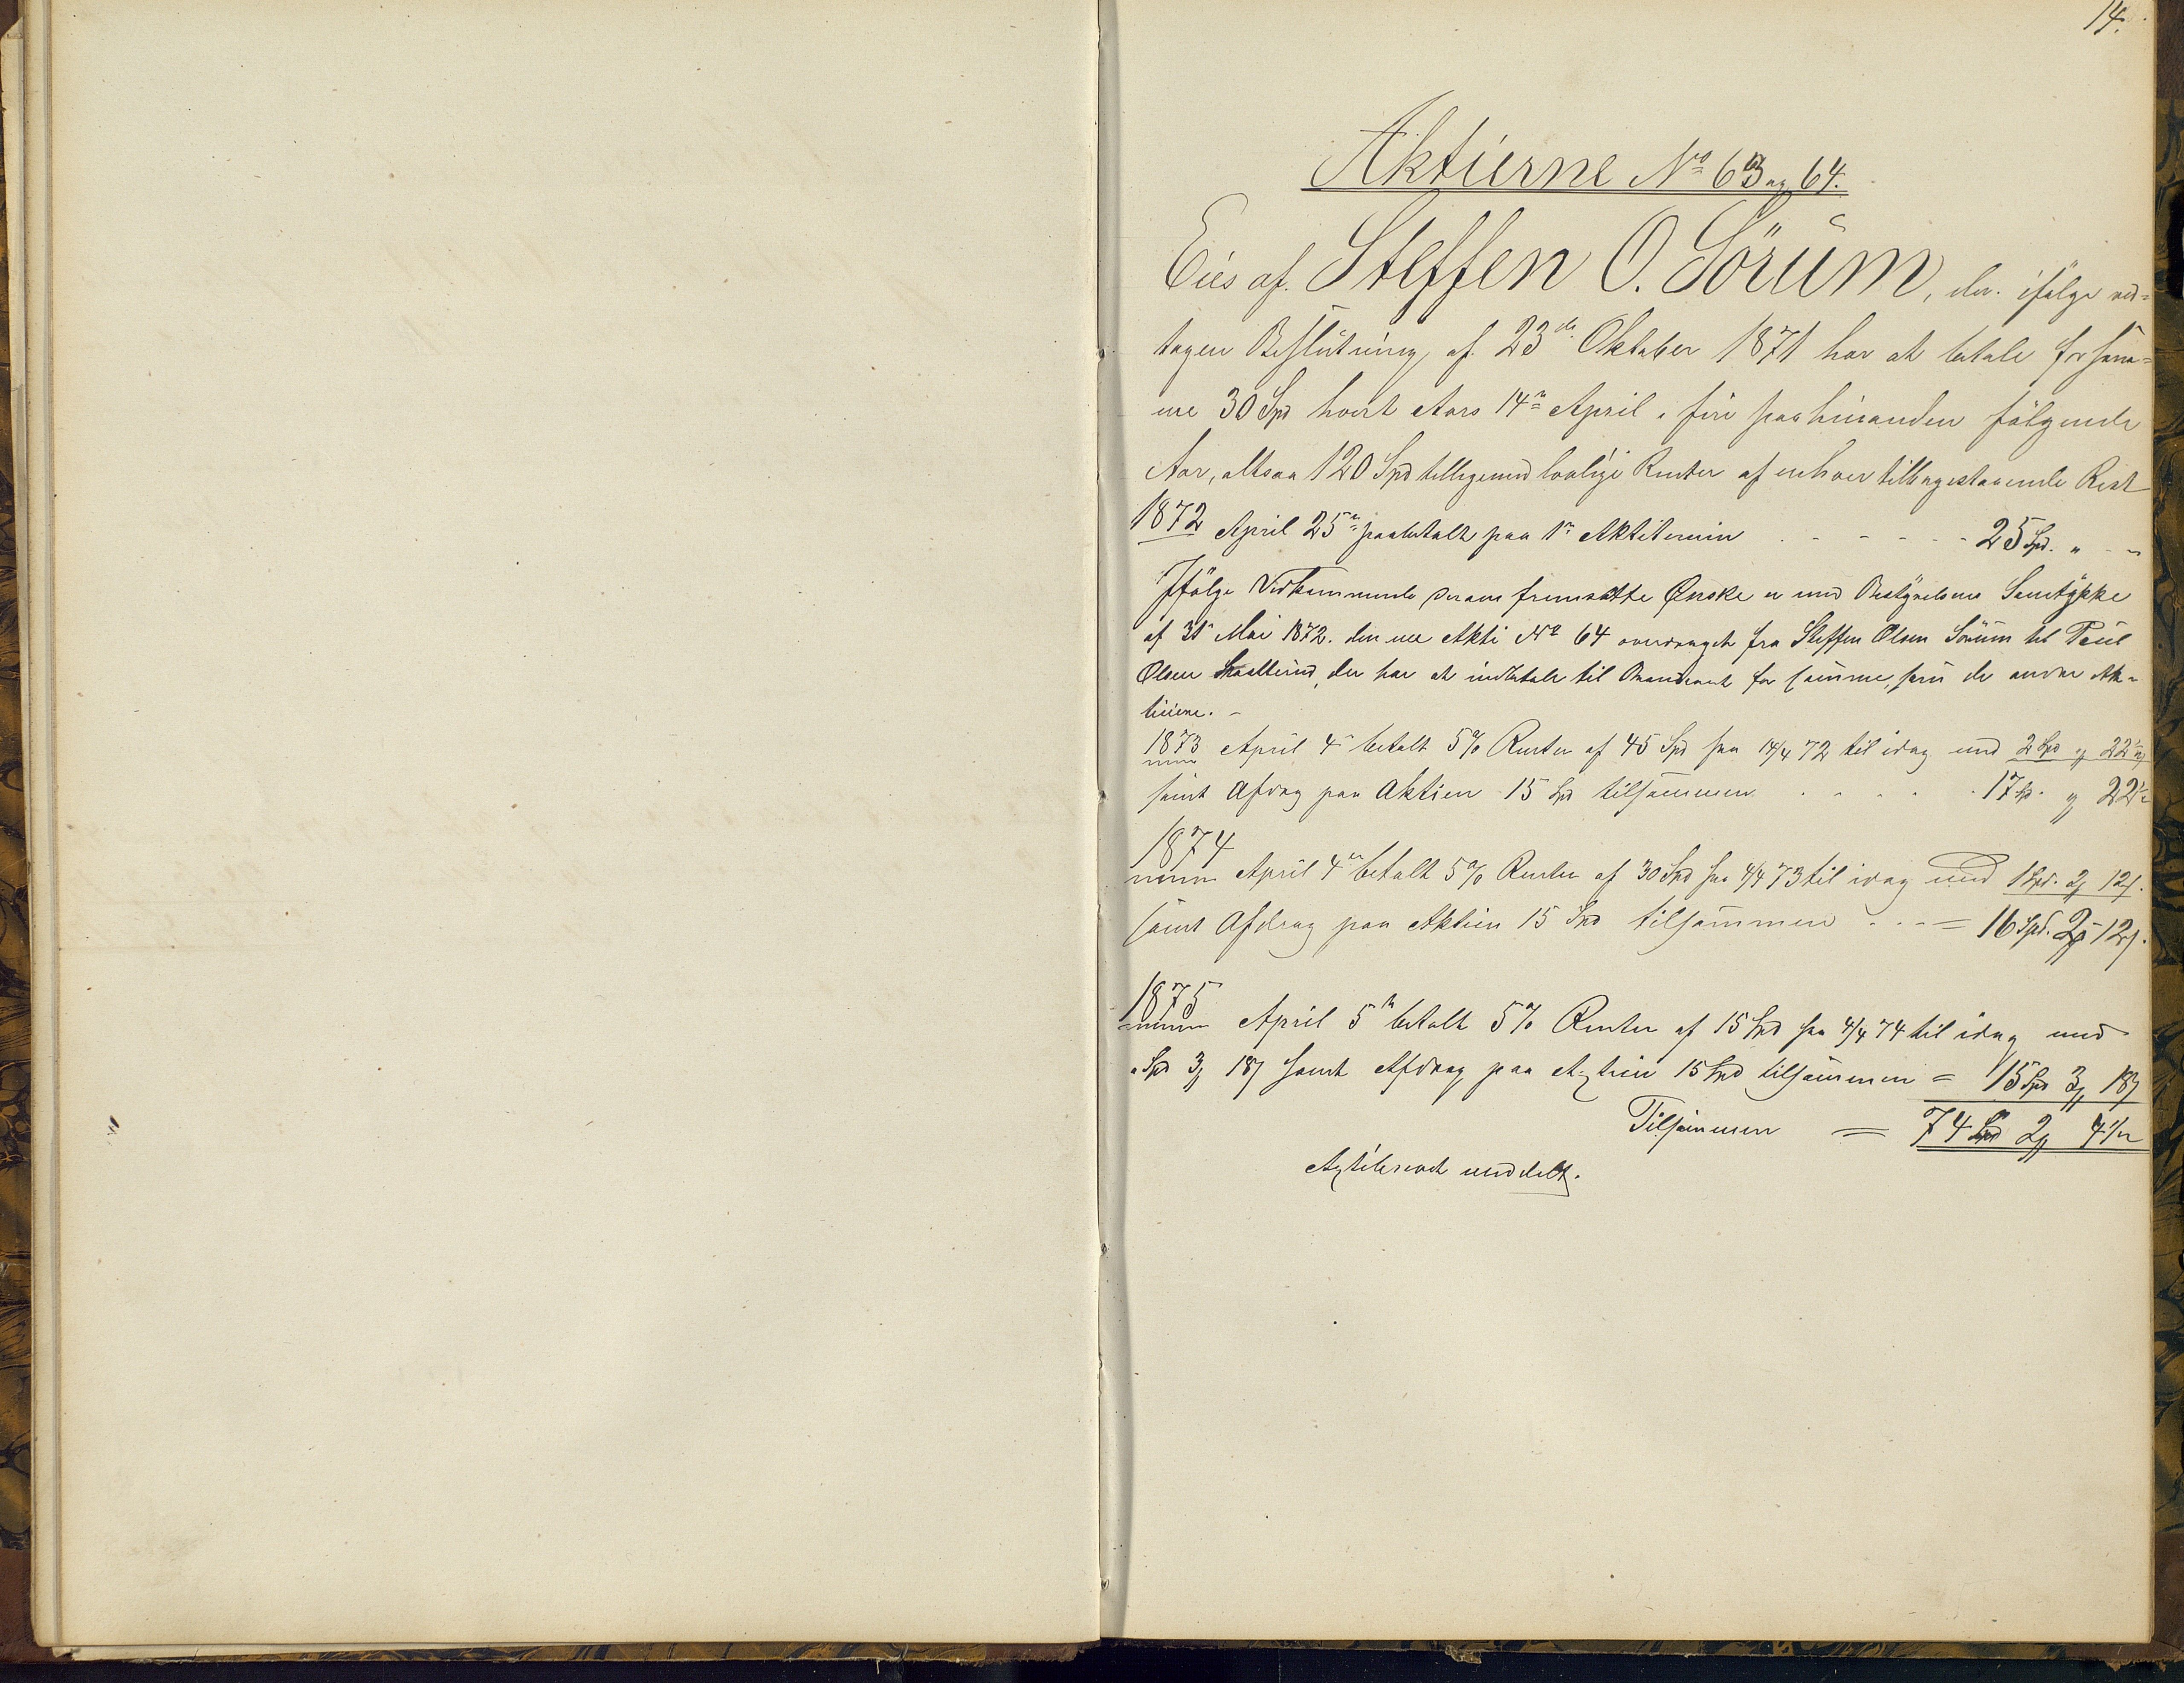 14.
Aktierne No 63 og 64.
Eies af Steffen O. Sörum, der ifølge ved-
tagen Beslutning af 23de Oktober 1871 har at betale for sam-
me 30 Spd hvert Aars 14de April i fire paa hinanden følgende
Aar, altsaa 120 Spd tilligemed lovlige Renter af enhver tilbagestaaende Rest
1872 April 25de paabetalt paa 1ste Aktietermin - - - - - 25 Spd. " - "
Ifølge Vedkommende derom fremsatte Ønske er med Bestyrelsens Samtykke
af 31te Mai 1872. den ene Aktie No 64 overdraget fra Steffen Olsen Sörum til Paul
Olsen der har at indbetale til for samme, som de andre Ak-
tieeiere. -
1873 April 4de betalt 5% Renter af 45 Spd fra 14/4 72 til idag med 2 Spd og 22½
samt Afdrag paa Aktien 15 Spd tilsammen . . . . . 17 Sp. " 22½
1874
April 4de betalt 5% Renter af 30 Spd fra 4/4 73 til idag med 1 Spd. 2 12.
samt Afdrag paa Aktien 15 Spd tilsammen - - - = 16 Spd. 2 - 12.
1875
April 5te betalt 5% Renter af 15 Spd fra 4/4 74 til idag med
" Spd 3 18 samt Afdrag paa Actien 15 Spd tilsammen = 15 Spd 3 18
Tilsammen = 74 Spd 2 4½
Actiebrevet meddelt.